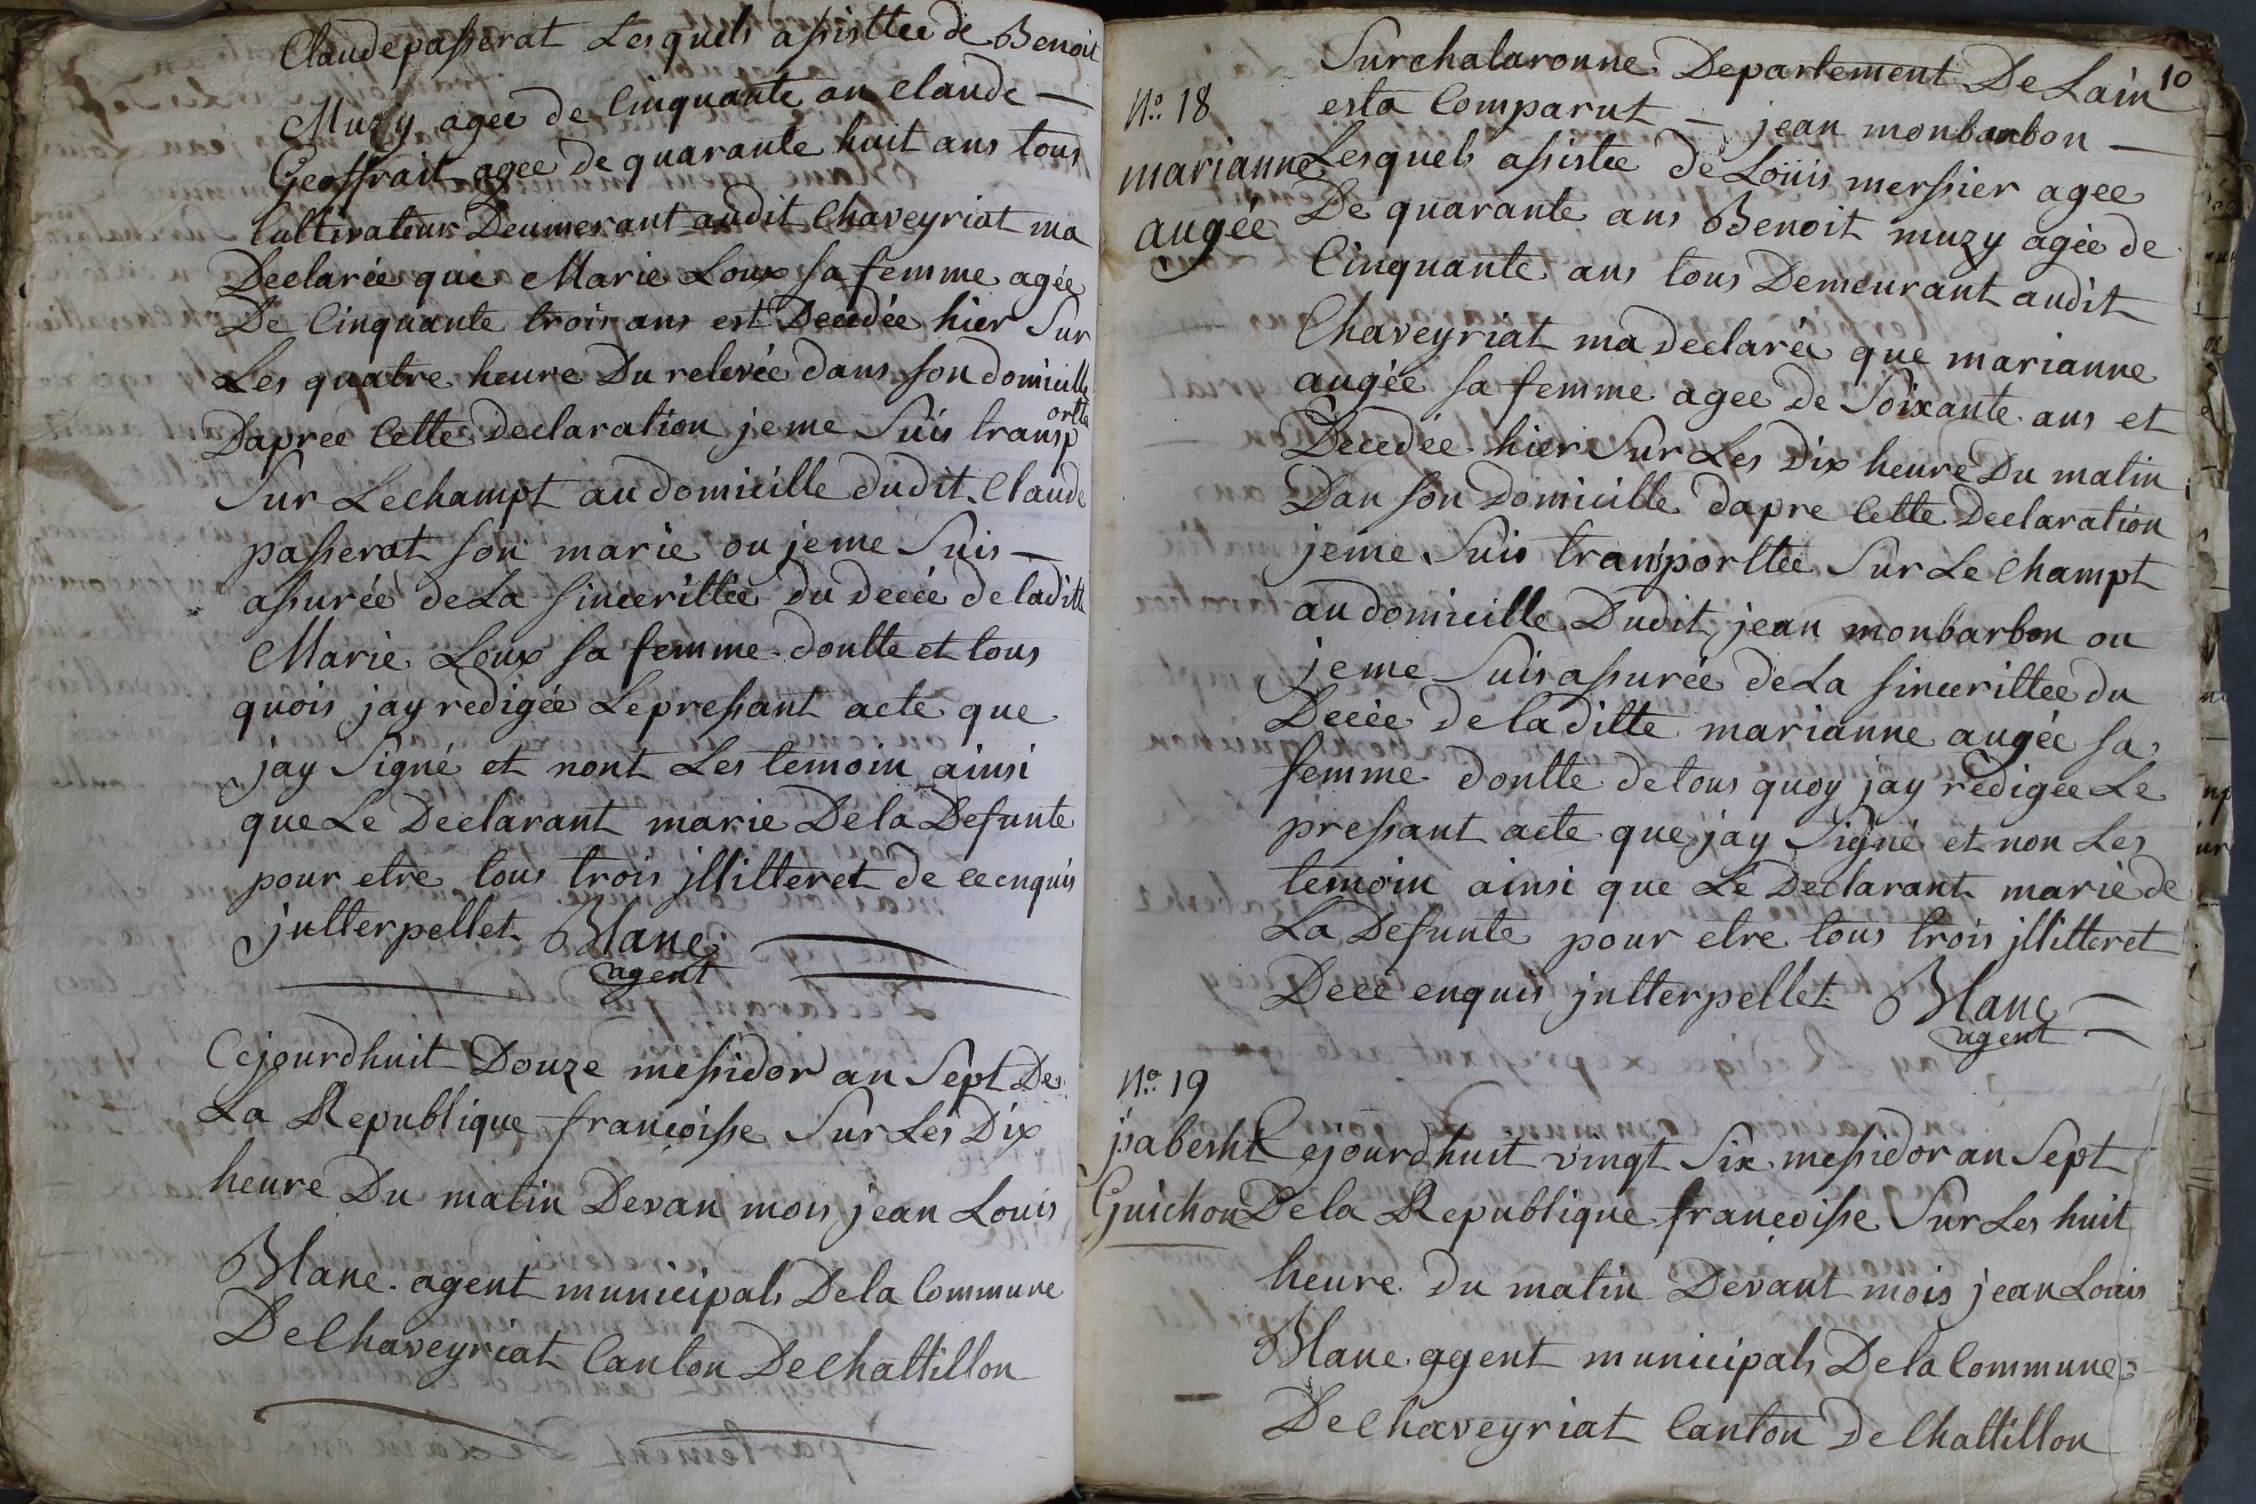 Claude passerat Lesquels assisttee de Benoit
Muzy agee de Cinquante an Claude —
Geoffrait agee de quarante huit ans tous
Cultivateur Deumerant audit Chaveyriat ma
Declarée que Marie Loux sa femme agée
De Cinquante trois ans est Decedée hier Sur
Les quatre heure Du relevée dans son domicille
Dapree Cette declaration je me Suis transportte
Sur Le champt au domicille dudit Claude
passerat son marie ou je me Suis —
assurée de La sincerittée du decée de laditte
Marie Loux sa femme dontte et tous
quois jay redigée Le pressant acte que
jay Signé et nont Les temoin ainsi
que Le Declarant marie De la Defunte
pour etre tous trois jllitteret de ce enquis
jntterpellet Blanc
agent
Cejourdhuit Douze messidor an Sept De
La Republique françoisse Sur Les Dix
heure Du matin Devan mois jean Louis
Blanc agent municipals De la Commune
De Chaveyriat Canton De Chattillon
10
Sur chalaronne Departement De Lain
N.o 18
marianne
augée
esta Comparut — jean monbarbon —
Lesquels assistée de Loüis messier agee
De quarante ans Benoit muzy agée de
Cinquante ans tous Demeurant audit
Chaveyriat ma declarée que marianne
augée sa femme agee de Soixante ans et
Decedée hier Sur Les Dix heure Du matin
Dan son domicille dapre Cette Declaration
je me Suis transporttée Sur Le Champt
au domicille Dudit jean monbarbon ou
je me Suis assurée de La sincerittee du
Decée de laditte marianne augée sa
femme dontte de tous quoy jay redigée Le
pressant acte que jay Signé et non Les
temoin ainsi que Le Declarant marie de
La Defunte pour etre tous trois jllitteret
Decé enquis jntterpellet Blanc —
agent —
N.o 19
jsabesht
Guichon
Cejourdhuit vingt Six messidor an Sept
De la Republique françoisse Sur Les huit
heure Du matin Devant mois jean Louis
Blanc agent municipals De la Commune
De Chaveyriat Canton De Chattillon